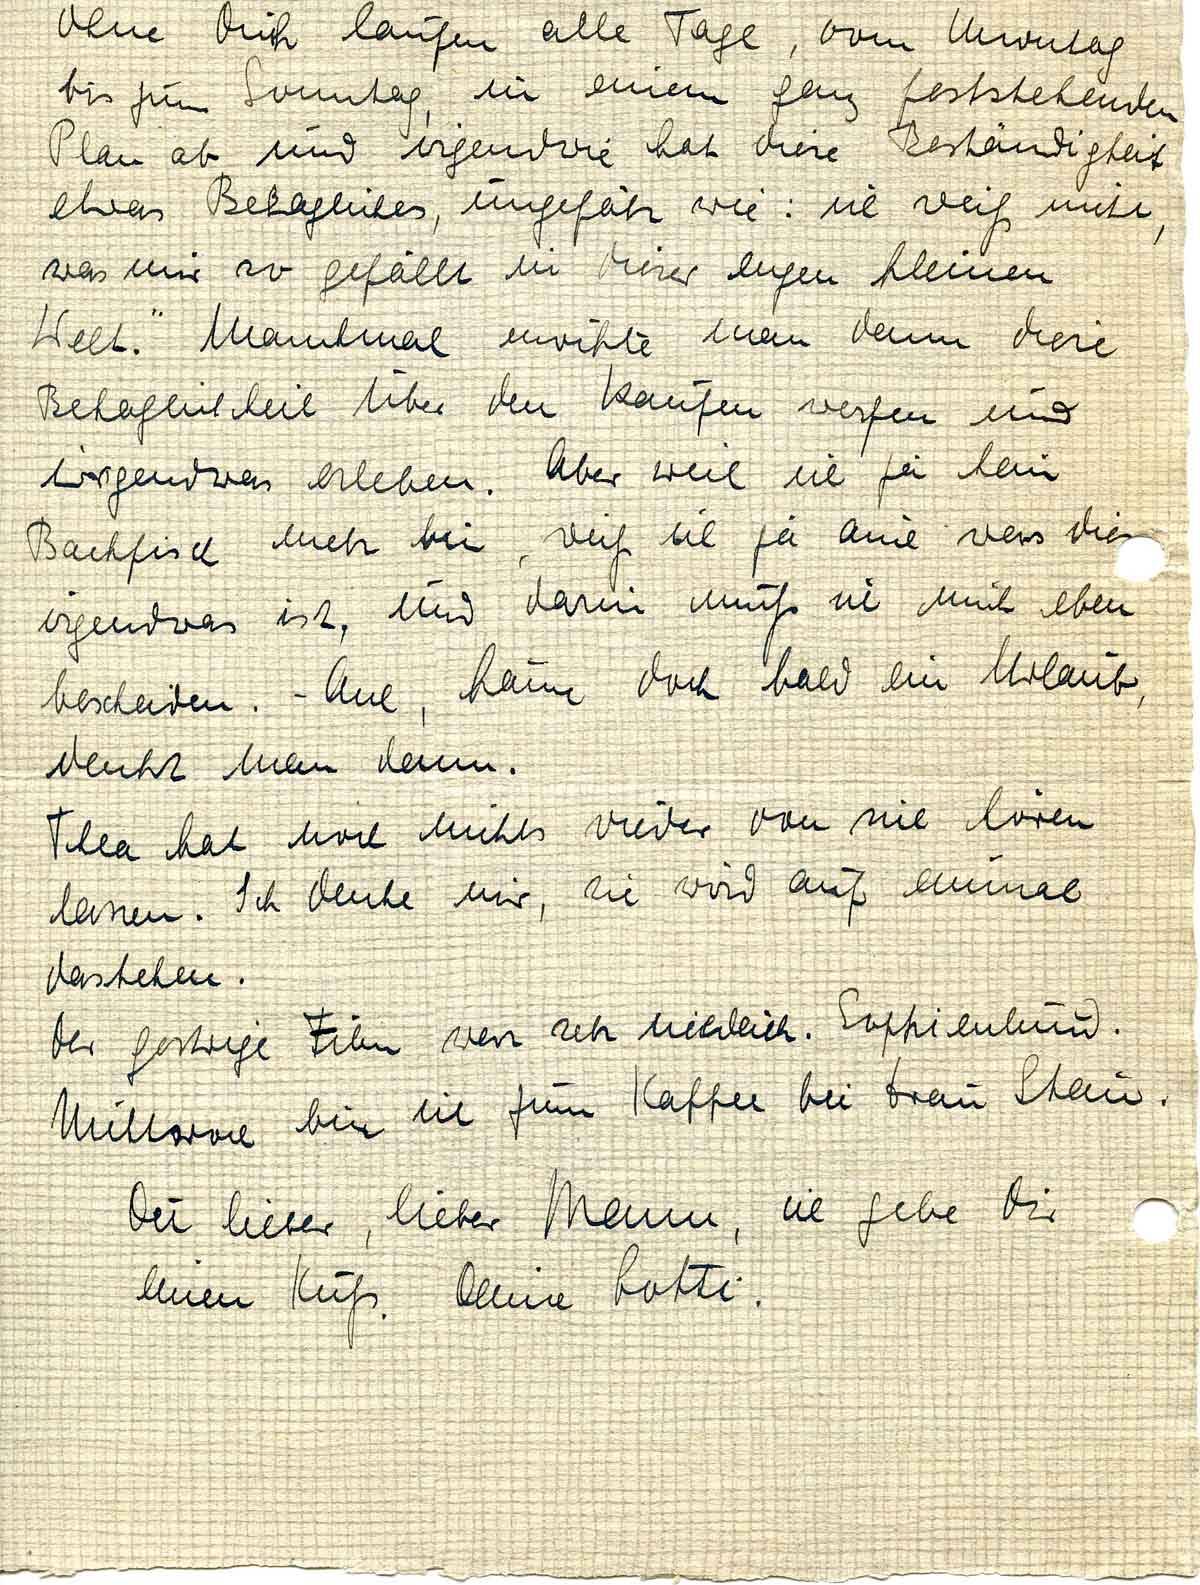 Ohne Dich laufen alle Tage, vom Montag
bis zum Sonntag, in einem ganz feststehenden
Plan ab und irgendwie hat diese Beständigkeit
etwas Behagliches, ungefähr wie: ich weiß nicht,
was mir so gefällt in dieser engen kleinen
Welt." Manchmal möchte man dann diese
Behaglichkeit über den Haufen werfen und
irgendwas erleben. Aber weil ich ja kein
Backfisch mehr bin, weiß ich ja auch was dies
irgendwas ist. Und darin muß ich mich eben
bescheiden. - Ach, käme doch bald ein Urlaub,
denkt man dann.
Thea hat noch nichts wieder von sich hören
lassen. Ich denke mir, sie wird auf einmal
dastehen.
Der gestrige Film war sehr niedlich. Sophienlund.
Mittwoch bin ich zum Kaffee bei Frau Stau.
Du lieber, lieber Mann, ich gebe Dir
einen Kuß. Deine Lotti.